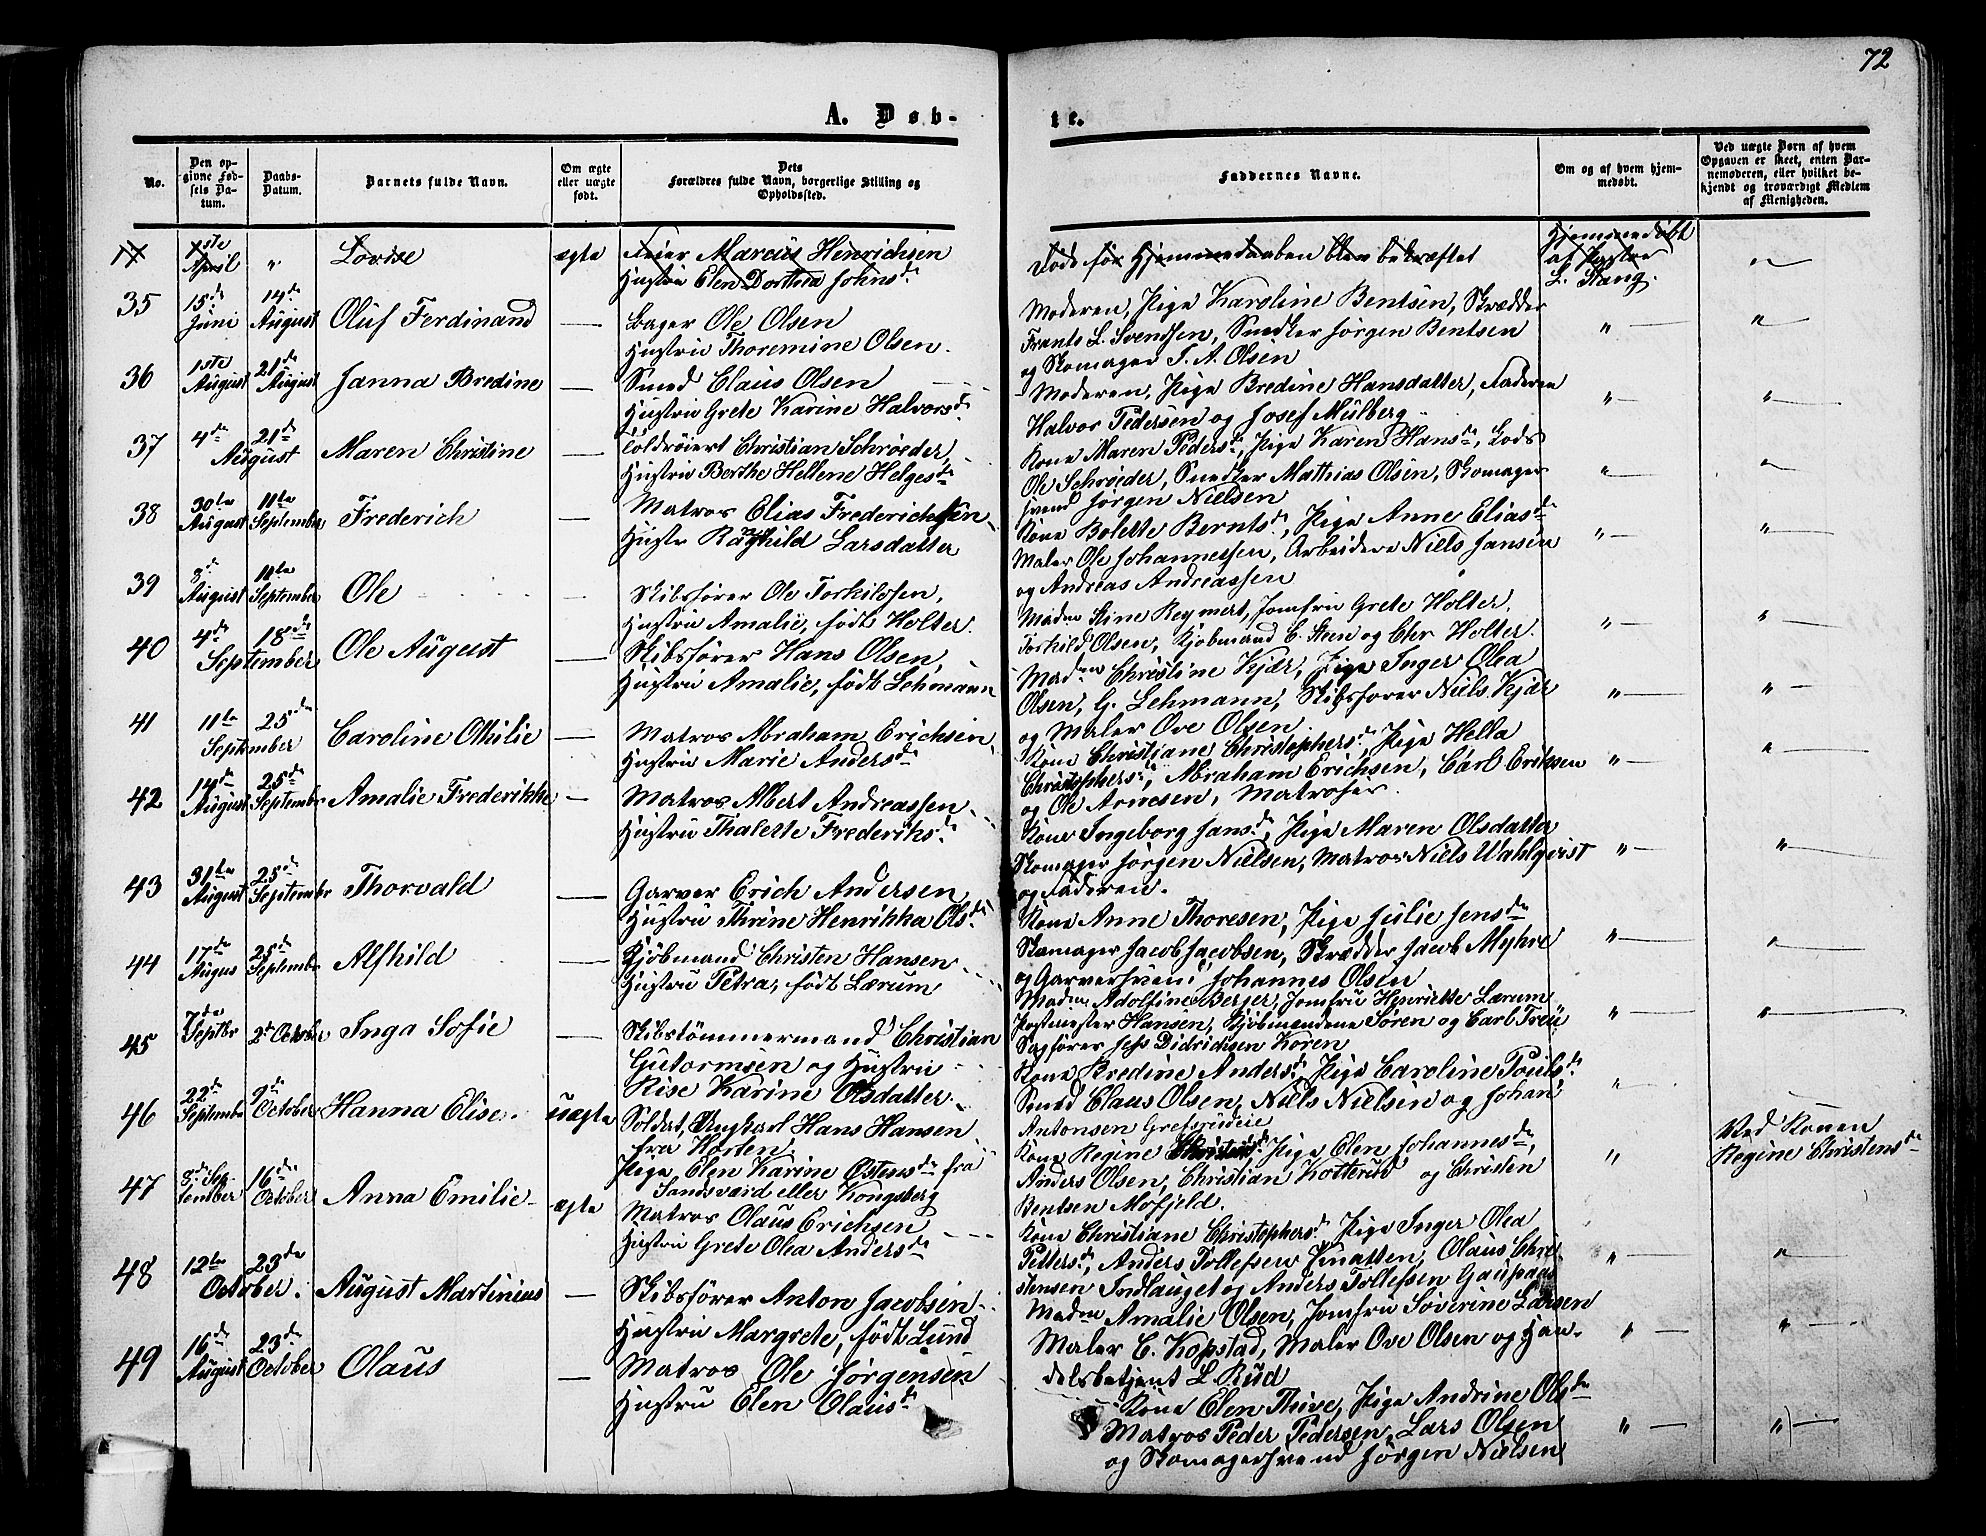 72
A. Døb-
te.
No.
Den op-
givne Fød-
sels Da-
tum.
Daabs-
Datum.
Barnets fulde Navn.
Om ægte
eller uægte
født.
Dets
Forældres fulde Navn, borgerlige Stilling og
Opholdssted.
Faddernes Navne.
Om og af hvem hjem-
medøbt.
Ved uægte Børn af hvem
Opgaven er skeet, enten Bar-
nemoderen, eller hvilket be-
kjendt og troværdigt Medlem
af Menigheden.
1ste
April " Lovise ægte Feier Marcus Henrichsen
Hustru Elen Dorthea Johnsd.
Døde før Hjemmedaaben blev bekræftet
Hjemmedøbt
af Pastor
L. Stang.
35 15de Juni 14de August Oluf Ferdinand — Bager Ole Olsen
Hustru Thoremine Olsen.
Moderen, Pige Karoline Bentsen, Skrædder
Frants L. Svendsen, Snedker Jørgen Bentsen
og Skomager T. A. Olsen
" — "
36 1ste August 21de August Janna Bredine — Smed Claus Olsen
Hustru Grete Karine Halvorsd.
Moderen, Pige Bredine Hansdatter, Faderen
Halvor Pedersen og Josef Mülberg
" — "
37 4de 21de August Maren Christine — Toldroiert Christian Schrøeder,
Hustru Berthe Hellene Helgesd.
Kone Maren Pedersd., Pige Karen Hansd., Lods
Ole Schrøeder, Snedker Mathias Olsen, Skomager
svend Jørgen Nielsen
" — "
38 30te August 11te September Frederich — Matros Elias Frederichsen
Hustr Raghild Larsdatter
Kone Bolette Berntsd., Pige Anne Eliasd.
Maler Ole Johannessen, Arbeidere Niels Jansen
og Andreas Andreassen
" — "
39 8de August 11te September Ole — Skibsfører Ole Torkildsen,
Hustru Amalie, født Holter.
Madm Stine Reymert, Jomfru Grete Holter.
Torkild Olsen, Kjøbmand C. Steen og Chr Holter.
" — "
40 4de 18de September Ole August — Skibsfører Hans Olsen,
Hustru Amalie, født Lehmann
Madm Christine Kjær, Pige Inger Olea
Olsen, G. Lehmann, Skibsfører Niels Kjær
og Maler Ove Olsen
" — "
41 11te 25de September Caroline Othilie — Matros Abraham Erichsen
Hustru Marie Andersd.
Kone Christiane Christophersd., Pige Hella
Christophersd., Abraham Erichsen, Carl Eriksen
og Ole Arnesen, Matroser.
" — "
42 14de August 25de September Amalie Frederikke — Matros Albert Andreassen
Hustru Thalette Frederiksd.
Kone Ingeborg Jansd., Pige Maren Olsdatter
Skomager Jørgen Nielsen, Matros Niels Wahlqvist
og Faderen.
" — "
43 31te August 25de Septembr Thorvald — Garver Erich Andersen
Hustru Thrine Henrikka Olsd.
Kone Anne Thoresen, Pige Julie Jensd.
Skomager Jacob Jacobsen, Skrædder Jacob Myhre
og Garversvend Johannes Olsen
" — "
44 17de Augus 25de Septembr Alfhild — Kjøbmand Christen Hansen
Hustru Petra, født Lærum
Madm Adolfine Berger, Jomfru Henriette Lærum
Postmester Hansen, Kjøbmændene Søren og Carl Treu
Sagfører Jess Didrichsen Koren
" — "
45 7de Septbr 2d October Inga Sofie — Skibstømmermand Christian
Gutormsen og Hustru
Rise Karine Olsdatter
Kone Bredine Andersd. Pige Caroline Poulsd.
Smed Claus Olsen, Niels Nielsen og Johan
Antonsen
"
46 22de Septembr 9de October Hanna Elise. uægte Soldat, Ungkarl Hans Hansen
fra Horten.
Pige Elen Karine Ostensd. fra
Sandsværd eller Kongsberg
Kone Regine Pige Elen Johannesd.,
Anders Olsen, Christian Kotterud og Christen
Bentsen Mofjeld.
"
Ved Konen
Regine Christensd.
47 8de Sep-
tember 16de October Anna Emilie ægte Matros Olaus Erichsen
Hustru Grete Olea Andersd.
Kone Christiane Christophersd., Pige Inger Olea
Pettersd., Anders Tollefsen Knatten, Olaus Chri-
stensen Indlauget og Anders Tollefsen Gaupaas
" — "
48 12te 23de October. August Martinius — Skibsfører Anton Jacobsen
Hustru Margrete, født Lund
Madm Amalie Olsen, Jomfru Severine Larsen
Maler C. Kopstad, Maler Ove Olsen og Han-
delsbetjent L. Rud
" — "
49 16de August 23de October Olaus — Matros Ole Jørgensen
Hustru Elen Olausd.
Kone Elen Thive, Pige Andrine Olsd.
Matros Peder Pedersen, Lars Olsen
og Skomagersvend Jørgen Nielsen
" — "